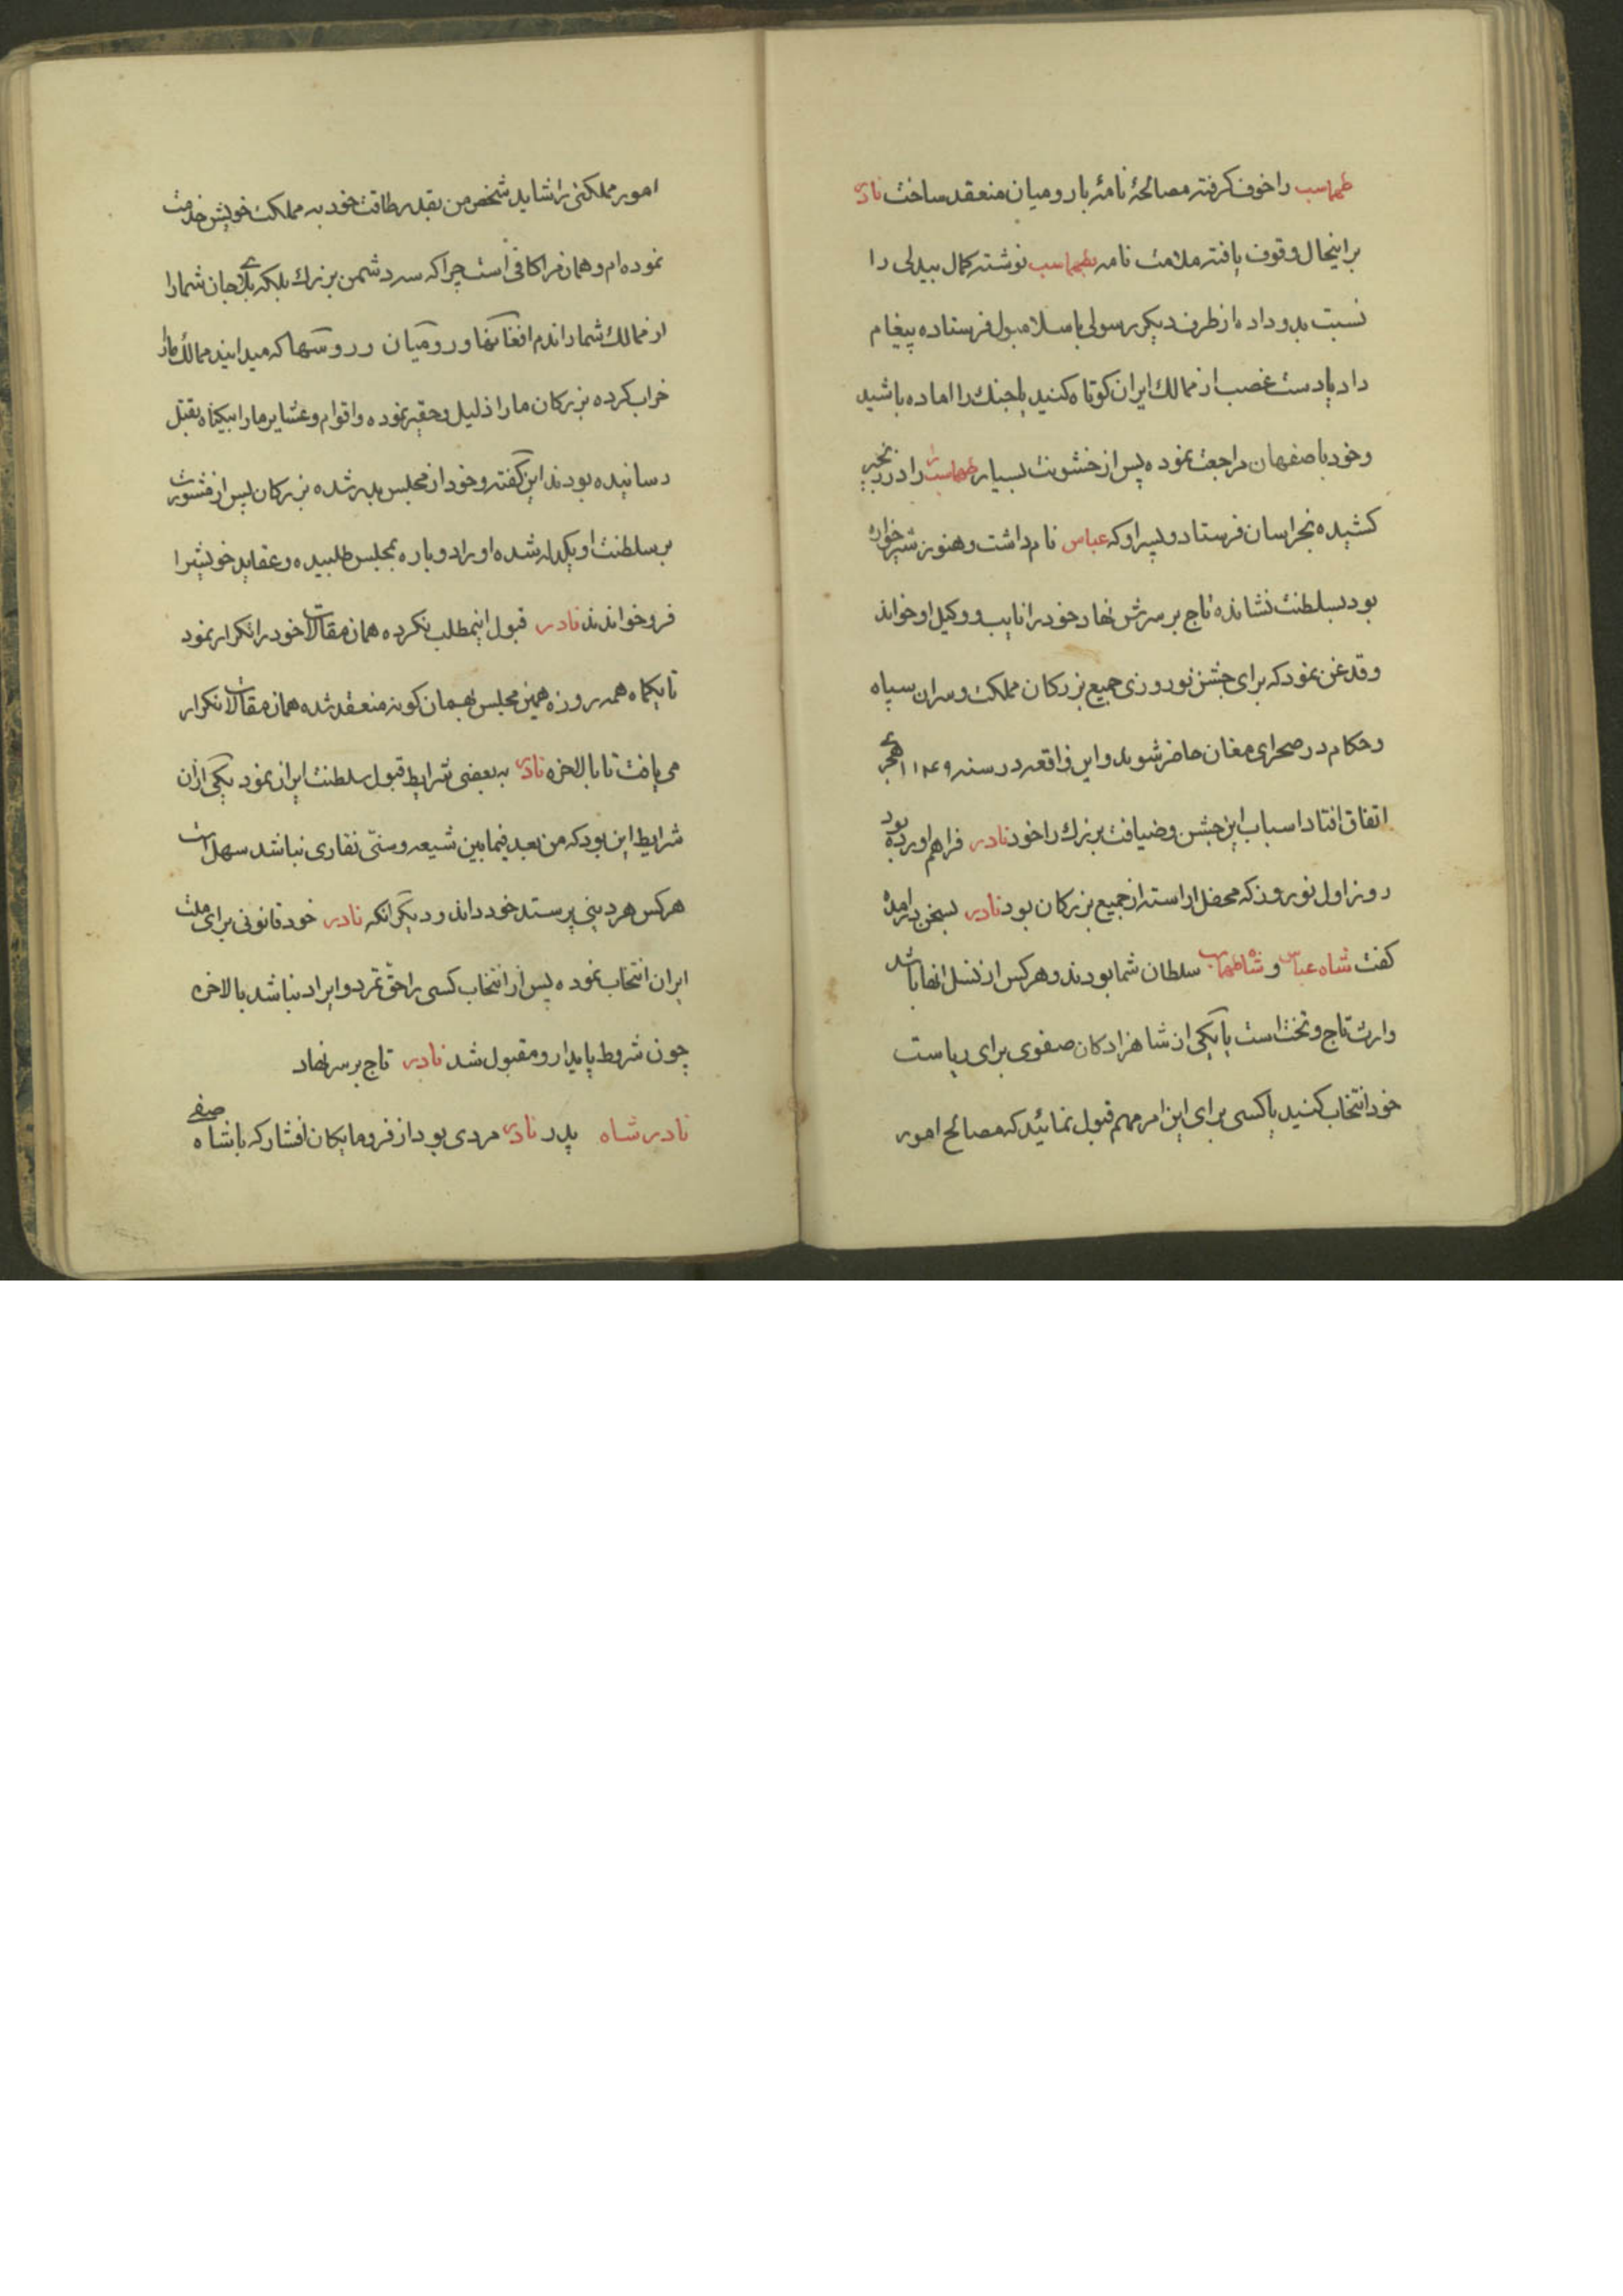 طهماسب را خوف گرفته مصالحهٔ نامهٔ با رومیان منعقد ساخت نادر
براینحال وقوف یافته ملامت نامه بطهماسب نوشته کمال بیدلی را
نسبت بدو داده از طرف دیگر رسولی باسلامبول فرستاده پیغام
داد یا دست غصب از ممالك ایران کوتاه کنید یا جنك را اماده باشید
و خود باصفهان مراجعت نموده پس از خشونت بسیار طهماسب را در زنجیر
کشیده بخراسان فرستاد و پسر او که عباس نام داشت و هنوز شیرخواره
بود بسلطنت نشانده تاج بر سرش نهاد خود را نایب و وکیل او خواند
و قدغن نمود که برای جشن نوروزی جمیع بزرکان مملکت و سران سپاه
و حکام در صحرای مغان حاضر شوند و این واقعه در سنه ۱۱۴۹ هجری
اتفاق افتاد اسباب این جشن و ضیافت بزرك را خود نادر فراهم اورده بود
روز اول نوروز که محفل اراسته از جمیع بزرکان بود نادر بسخن درامده
کفت شاه عباس و شاه طهماسب سلطان شما بودند و هر کس از نسل انها باشد
وارث تاج و تخت است یا یکی از شاهزادکان صفوی برای ریاست
خود انتخاب کنید یا کسی برای این امر مهم قبول نمائید که مصالح امور
امور مملکتی را شاید شخص من بقدر طاقت خود به مملکت خویش خدمت
نموده ام و همان مرا کافی است چرا که سه دشمن بزرك بلکه بلای جان شما را
از ممالك شما راندم افغانها و رومیان و روسها که میدانید ممالك ما را
خراب کرده بزرکان ما را ذلیل و حقیر نموده و اقوام و عشایر ما را بیکناه بقتل
رسانیده بودند این کفته و خود از مجلس بدر شده بزرکان پس از مشورت
بر سلطنت او یکدله شده او را دوباره بمجلس طلبیده و عقاید خویش را
فرو خواندند نادر قبول اینمطلب نکرده همان مقالات خود را تکرار نمود
تا یکماه همه روزه همین مجلس بهمان کونه منعقد شده همان مقالات تکرار
می یافت تا بالاخره نادر به بعضی شرایط قبول سلطنت ایران نمود یکی از ان
شرایط این بود که من بعد فیمابین شیعه و سنّی نقاری نباشد سهل است
هر کس هر دینی پرستد خود داند و دیگر انکه نادر خود قانونی برای ملت
ایران انتخاب نموده پس از انتخاب کسی را حق تمرد و ایراد نباشد بالاخره
چون شروط پایدار و مقبول شد نادر تاج بر سر نهاد
نادر شاه پدر نادر مردی بود از فرومایکان افشار که با شاه صفی